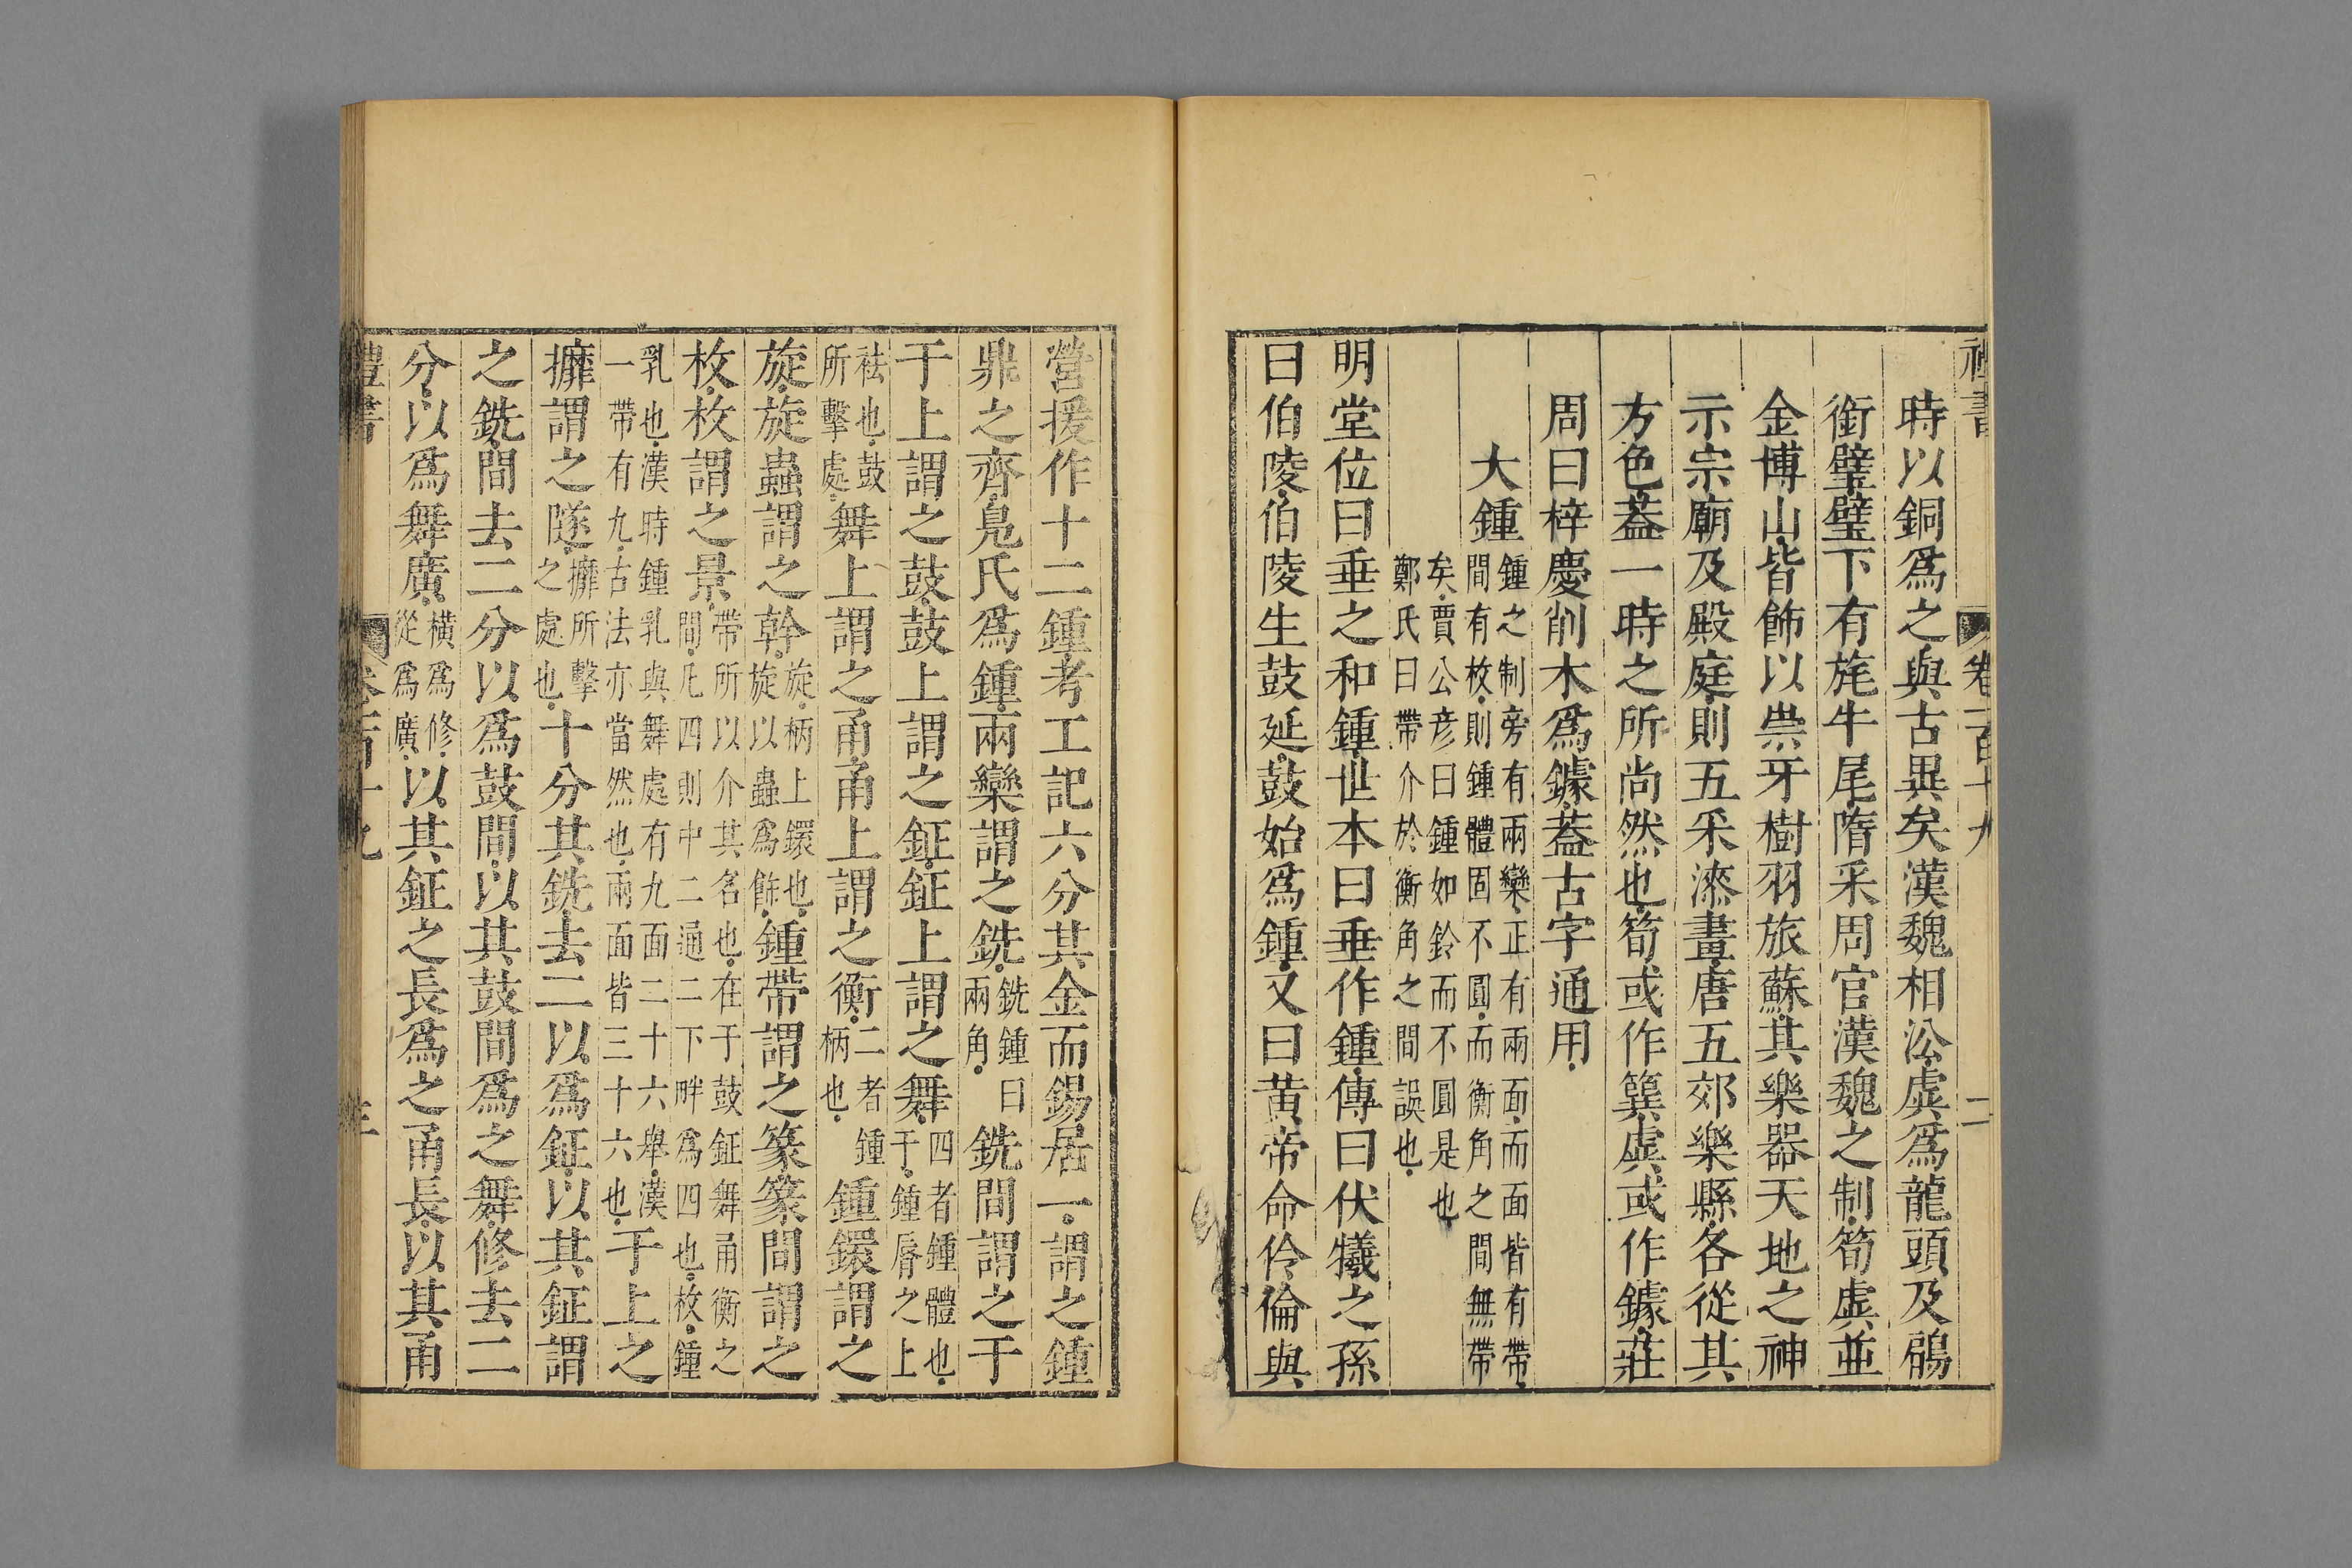 時以銅爲之與古異矣漢魏相㳂虡爲龍頭及鴋
銜璧璧下有旄牛尾隋采周官漢魏之制筍虡並
金博山皆飾以崇牙樹羽旅蘇其樂器天地之神
示宗廟及殿庭則五采漆畫唐五郊樂縣各從其
方色葢一時之所尚然也筍或作簨虡或作鐻莊
周曰梓慶削木爲鐻葢古字通用
大鍾鍾之制旁有兩欒正有兩面而面皆有帶
間有枚則鍾體固不圓而衡角之間無帶
矣賈公彦曰鍾如鈴而不圓是也
鄭氏曰帶介於衡角之間誤也
明堂位曰垂之和鍾世本曰垂作鍾傳曰伏犧之孫
曰伯陵伯陵生鼓延鼓始爲鍾又曰黃帝命伶倫與
營援作十二鍾考工記六分其金而錫居一謂之鍾
鼎之齊鳬氏爲鍾兩欒謂之銑銑鍾曰兩角銑間謂之于
于上謂之鼓鼓上謂之鉦鉦上謂之舞四者鍾體也于鍾脣之上
袪也鼓所擊處舞上謂之甬甬上謂之衡二者鍾柄也鍾鐶謂之
旋旋蟲謂之幹旋柄上鐶也旋以蟲爲飾鍾帶謂之篆篆間謂之
枚枚謂之景帶所以介其名也在于鼓鉦舞甬衡之間凡四則中二通二下畔爲四也枚鍾
乳也漢時鍾乳與舞處有九面二十六舉漢一帶有九古法亦當然也兩面皆三十六也于上之
攠謂之隧攠所擊之處也十分其銑去二以爲鉦以其鉦謂
之銑間去二分以爲鼓間以其鼓間爲之舞修去二
分以爲舞廣橫爲修從爲廣以其鉦之長爲之甬長以其甬